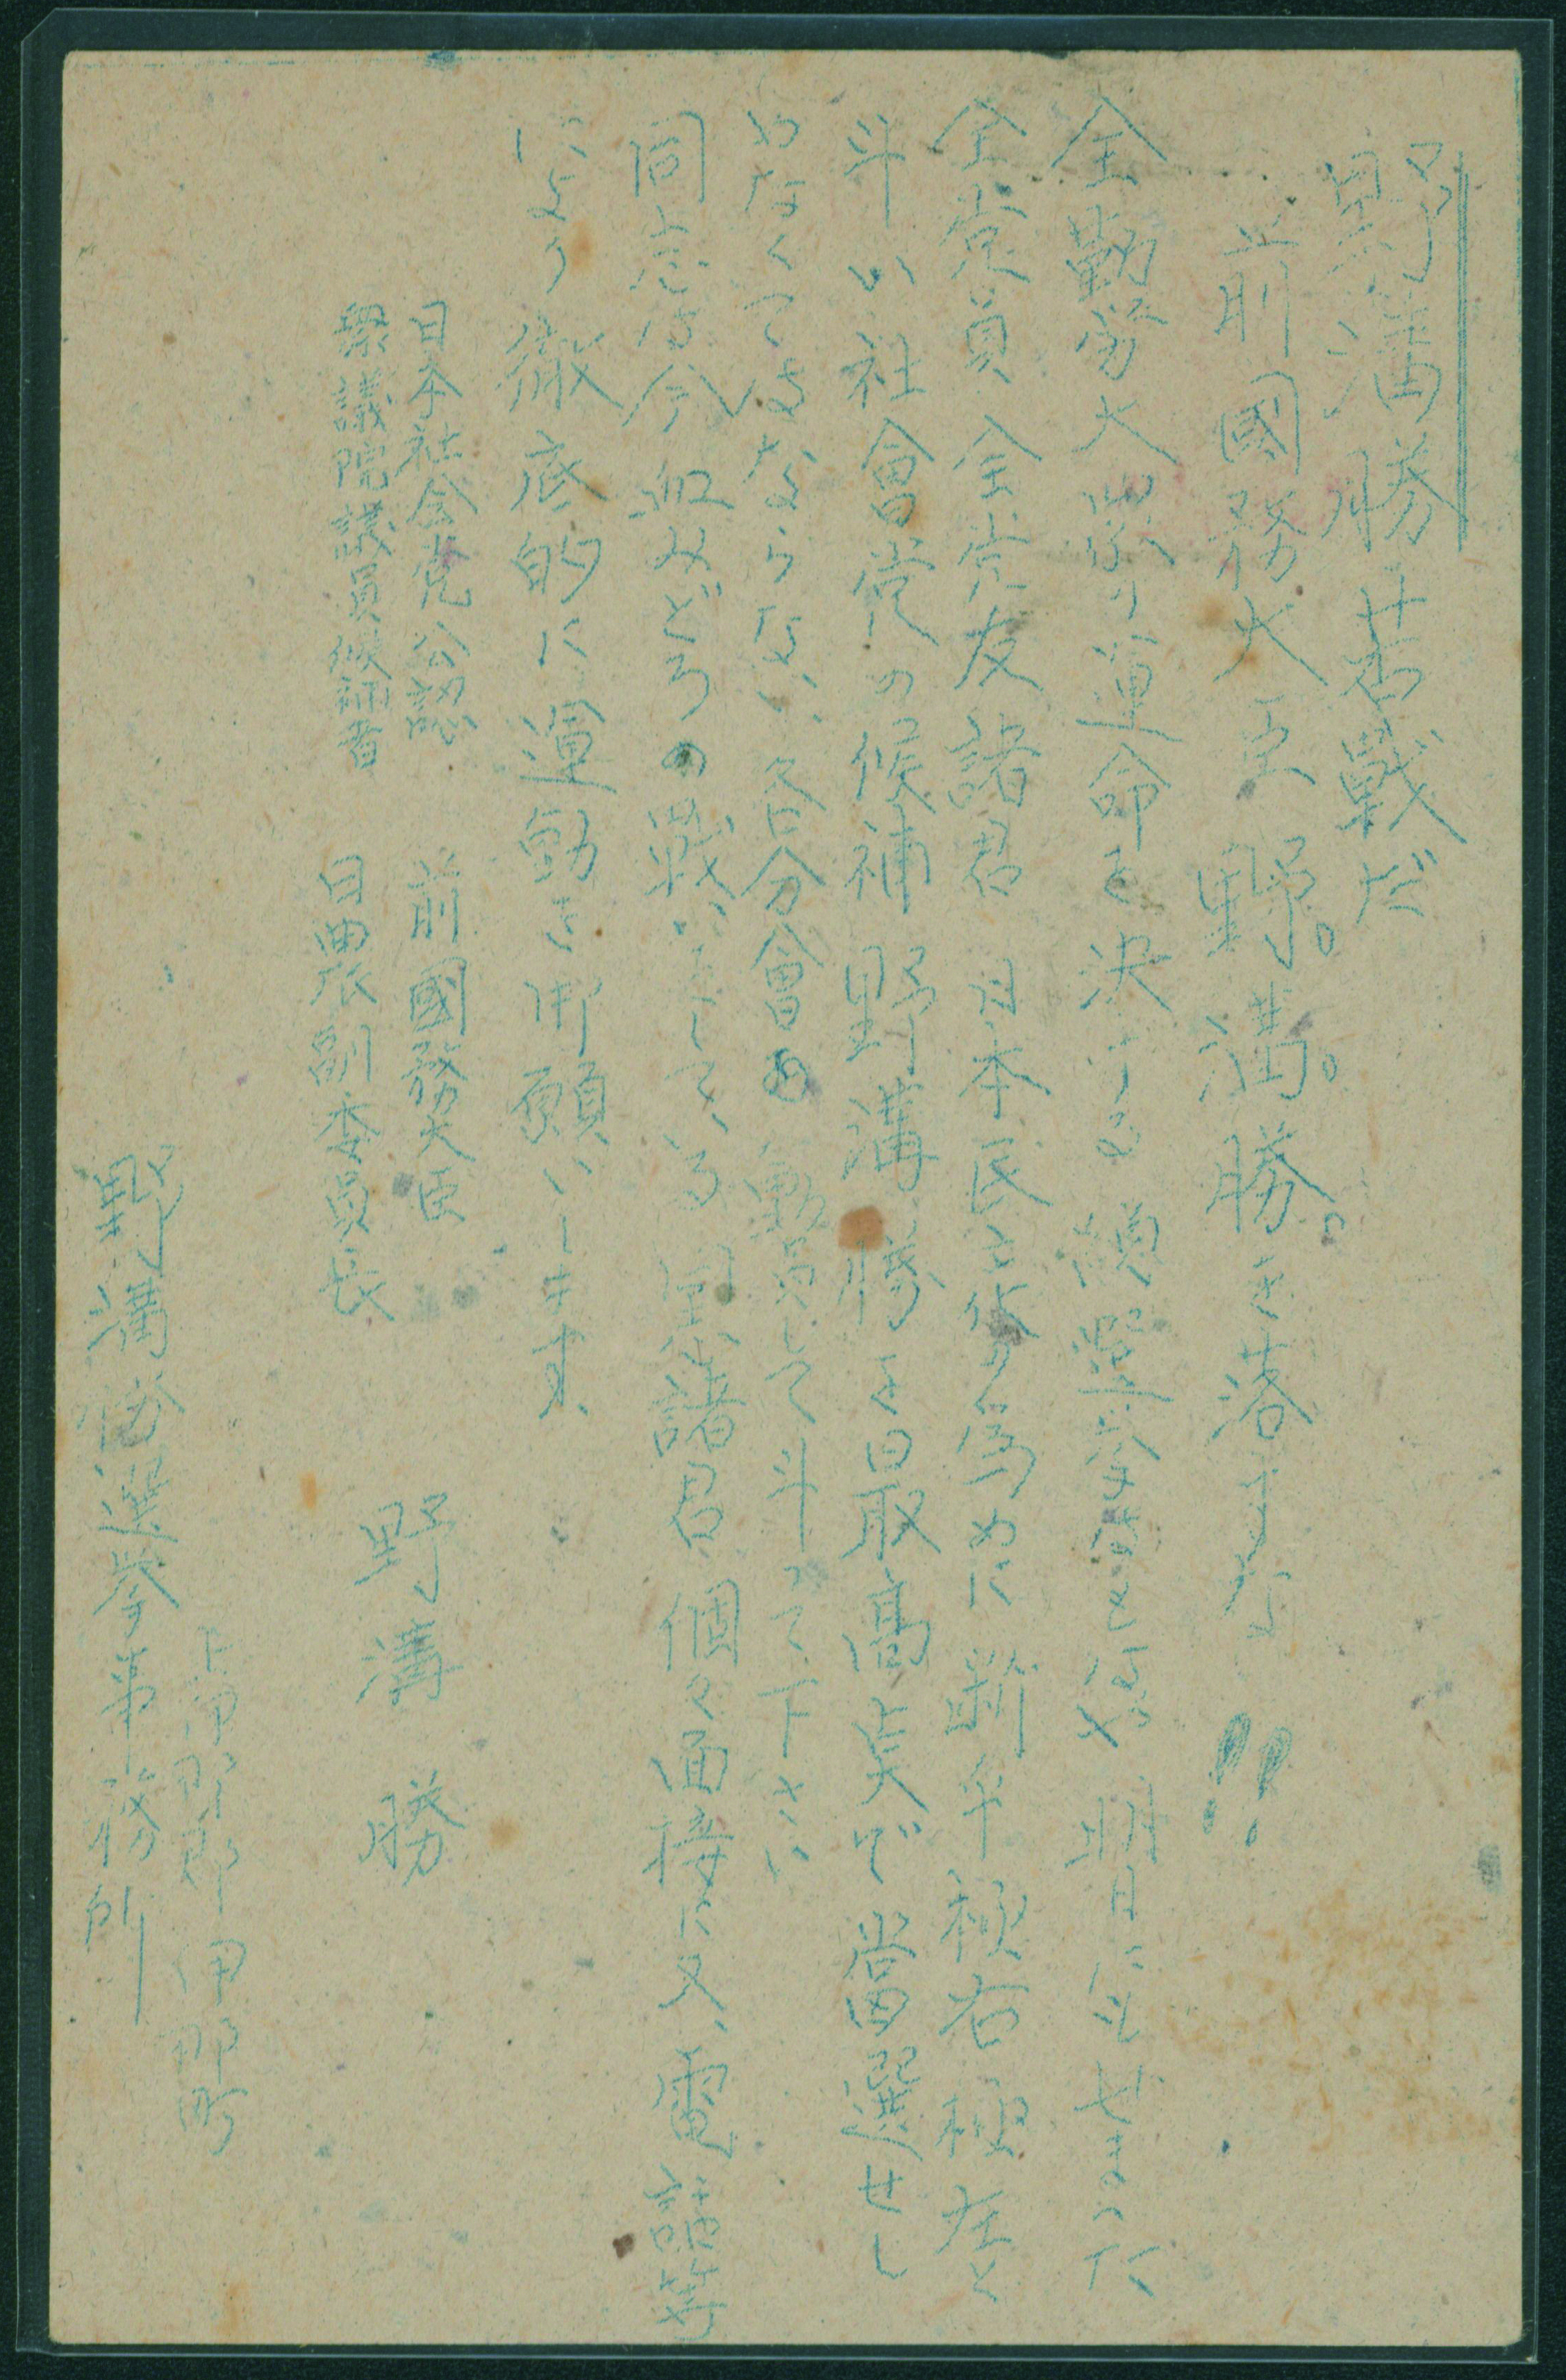 野溝勝苦戦だ
前國務大臣野。溝。勝。を落すな!!
全勤労大衆の運命を決する 総選挙もいよいよ明日にせまった
全党員 全党友諸君 日本民主化の為めに 断乎極右極左と
斗い社會党の候補 野溝勝を最高点で当選せし
めなくてはならない、各分會の動員して斗って下さい
同志は今血みどろの戦いをしている 同志諸君、個々面接に又、電話等
により徹底的に運動を御願いします、
日本社会党公認 前國務大臣
衆議院議員候補者 日農副委員長
野溝 勝
上伊那郡伊那町
野溝勝選挙事務所